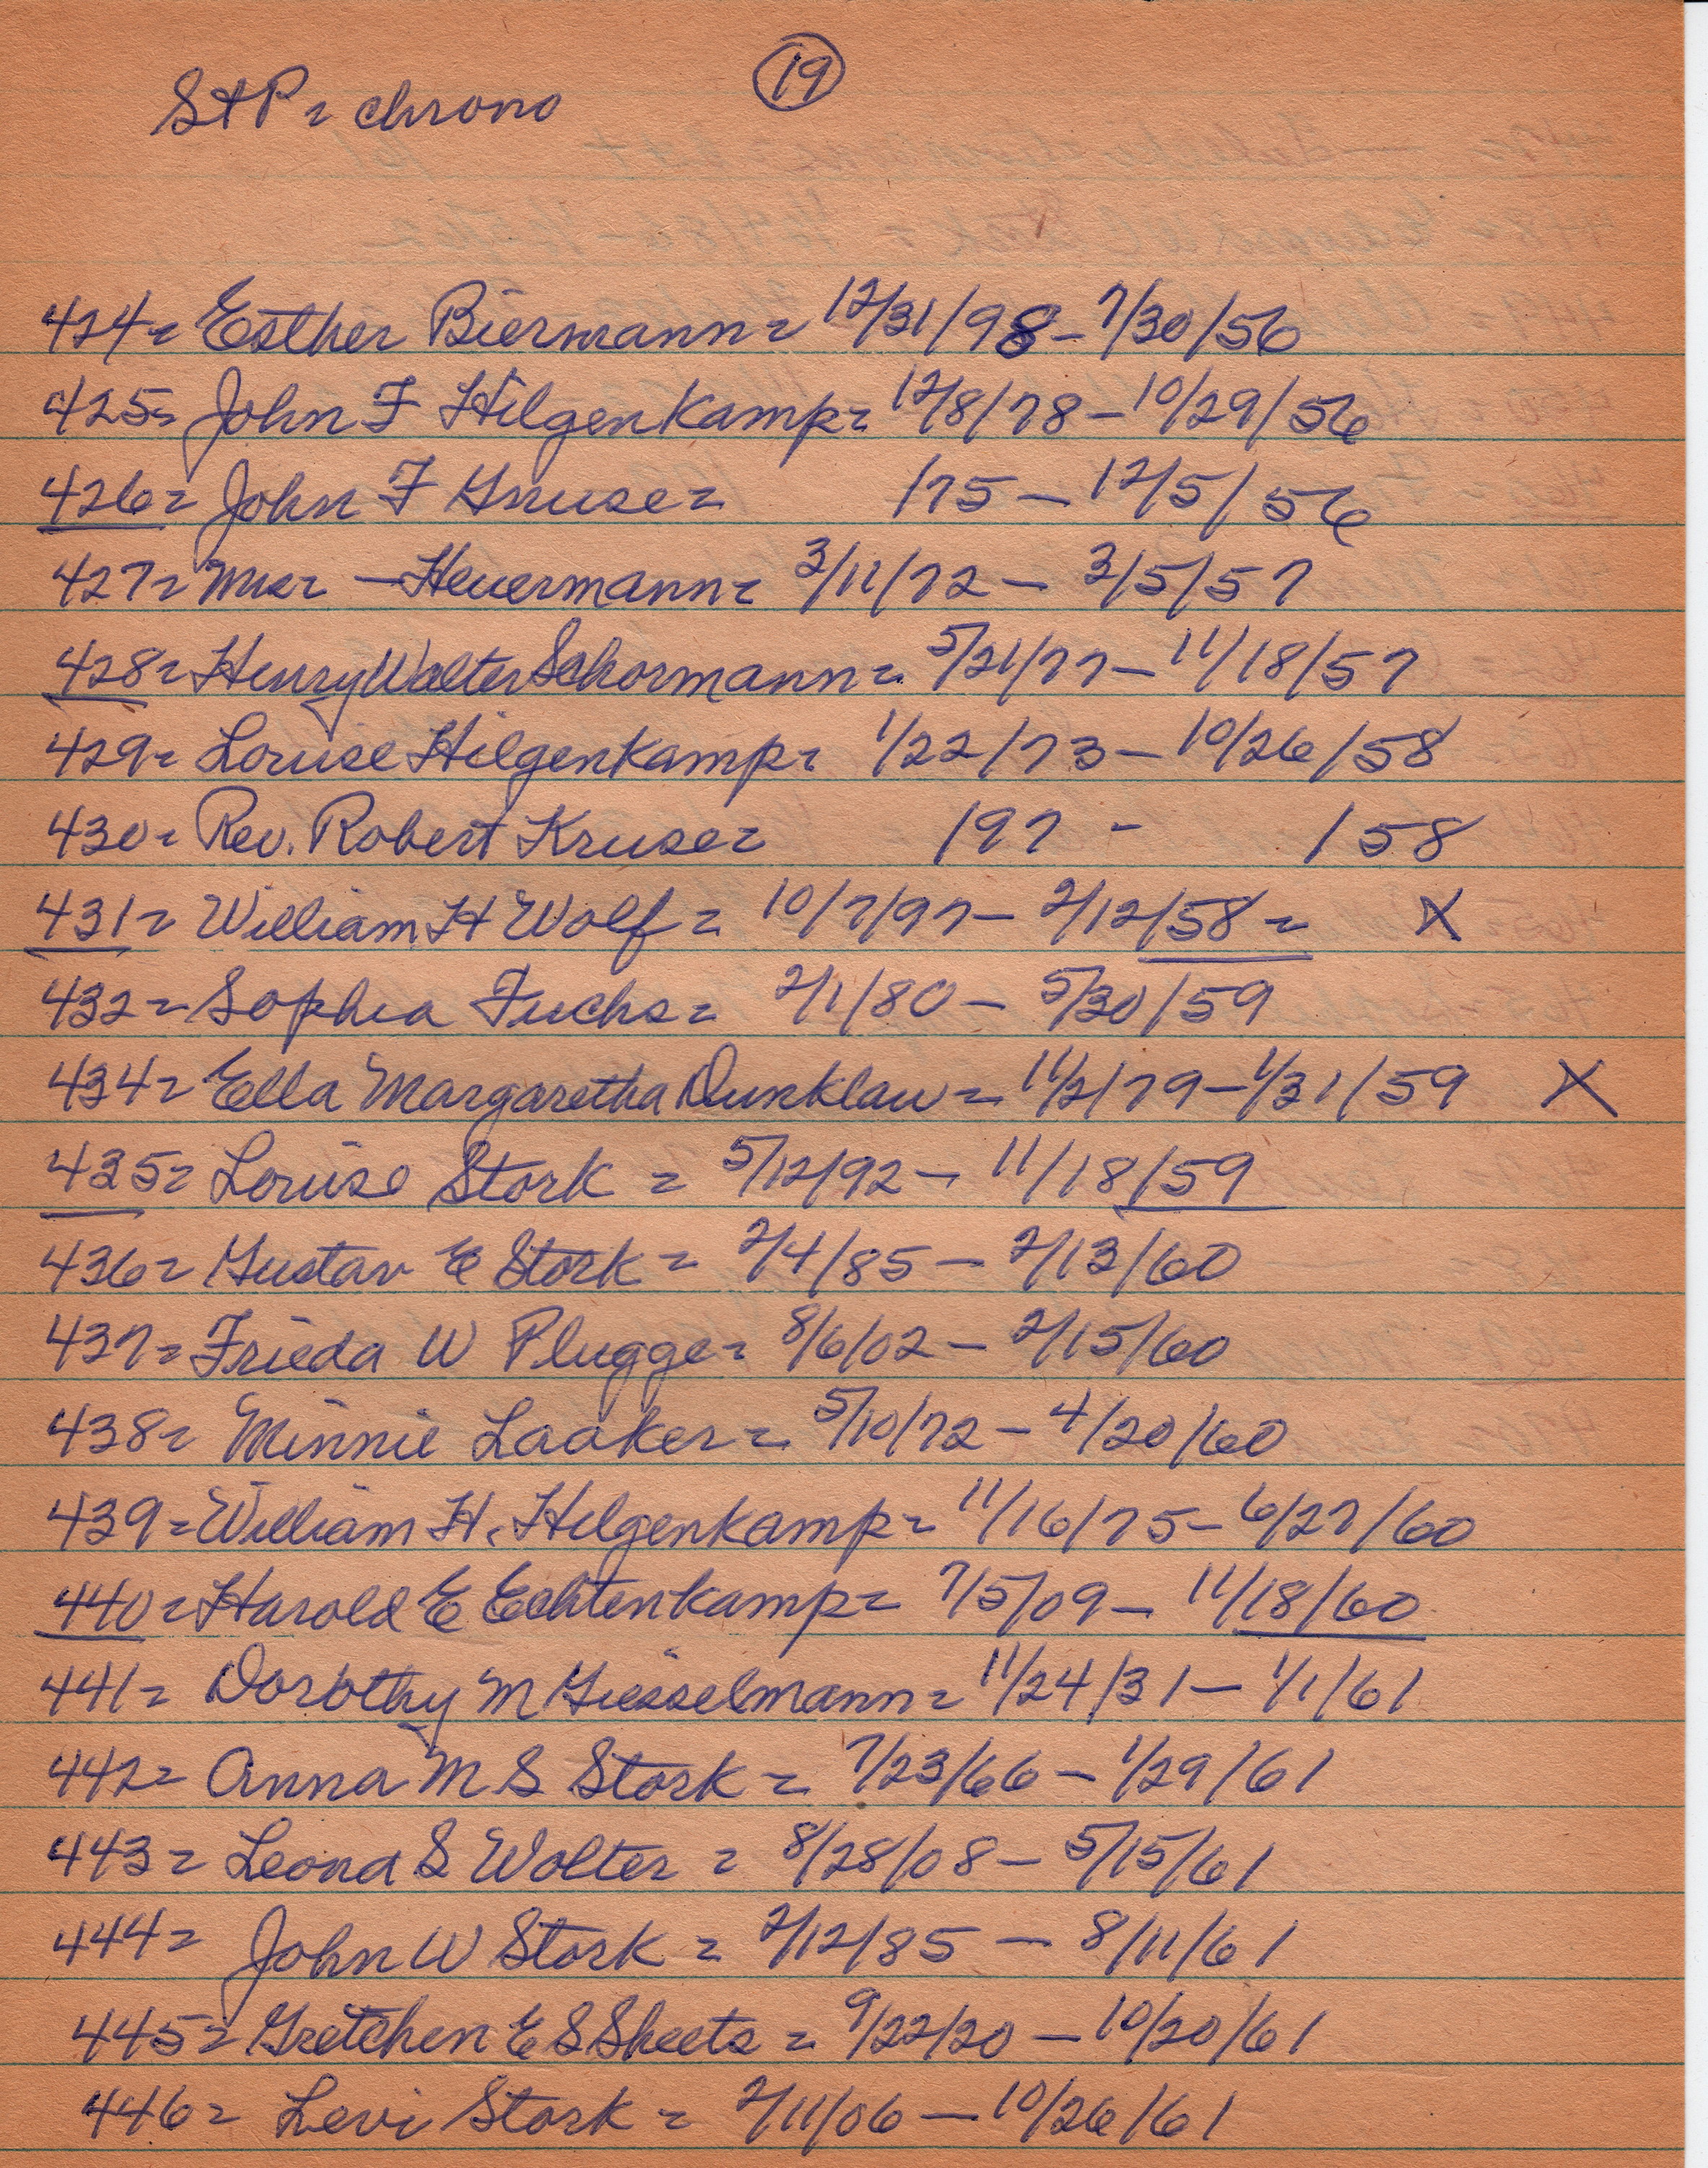 19
St P = chrono
424 = Esther Biermann = 12/31/98 - 7/30/56
425 = John F Hilgenkamp = 12/8/78 - 10/29/56
426 = John F Gruse = /75 - 12/5/56
427 = Mrs - Heuermann = 3/11/72 - 3/5/57
428 = Henry Walter Schormann = 5/21/77 - 11/18/57
429 = Louise Hilgenkamp = 1/22/73 - 10/26/58
430 = Rev. Robert Kruse = /97 - /58
431 = William H Wolf = 10/7/97 - 2/12/58 = X
432 = Sophia Fuchs = 2/1/80 - 5/30/59
434 = Ella Margaretha Dunklau = 11/2/79 - 1/31/59 X
435 = Louise Stork = 5/12/92 - 11/18/59
436 = Gustav E Stork = 2/4/85 - 2/13/60
437 = Frieda W Plugge = 8/6/02 - 2/15/60
438 = Minnie Laaker = 5/10/72 - 4/20/60
439 = William H. Hilgenkamp = 11/16/75 - 6/27/60
440 = Harold E Echtenkamp = 7/5/09 - 11/18/60
441 = Dorothy M Giesselmann = 11/24/31 - 1/1/61
442 = Anna M S Stork = 7/23/66 - 1/29/61
443 = Leona S Wolter = 8/28/08 - 5/15/61
444 = John W Stork = 2/12/85 - 8/11/61
445 = Gretchen E S Sheets = 9/22/20 - 10/20/61
446 = Levi Stork = 2/11/06 - 10/26/61